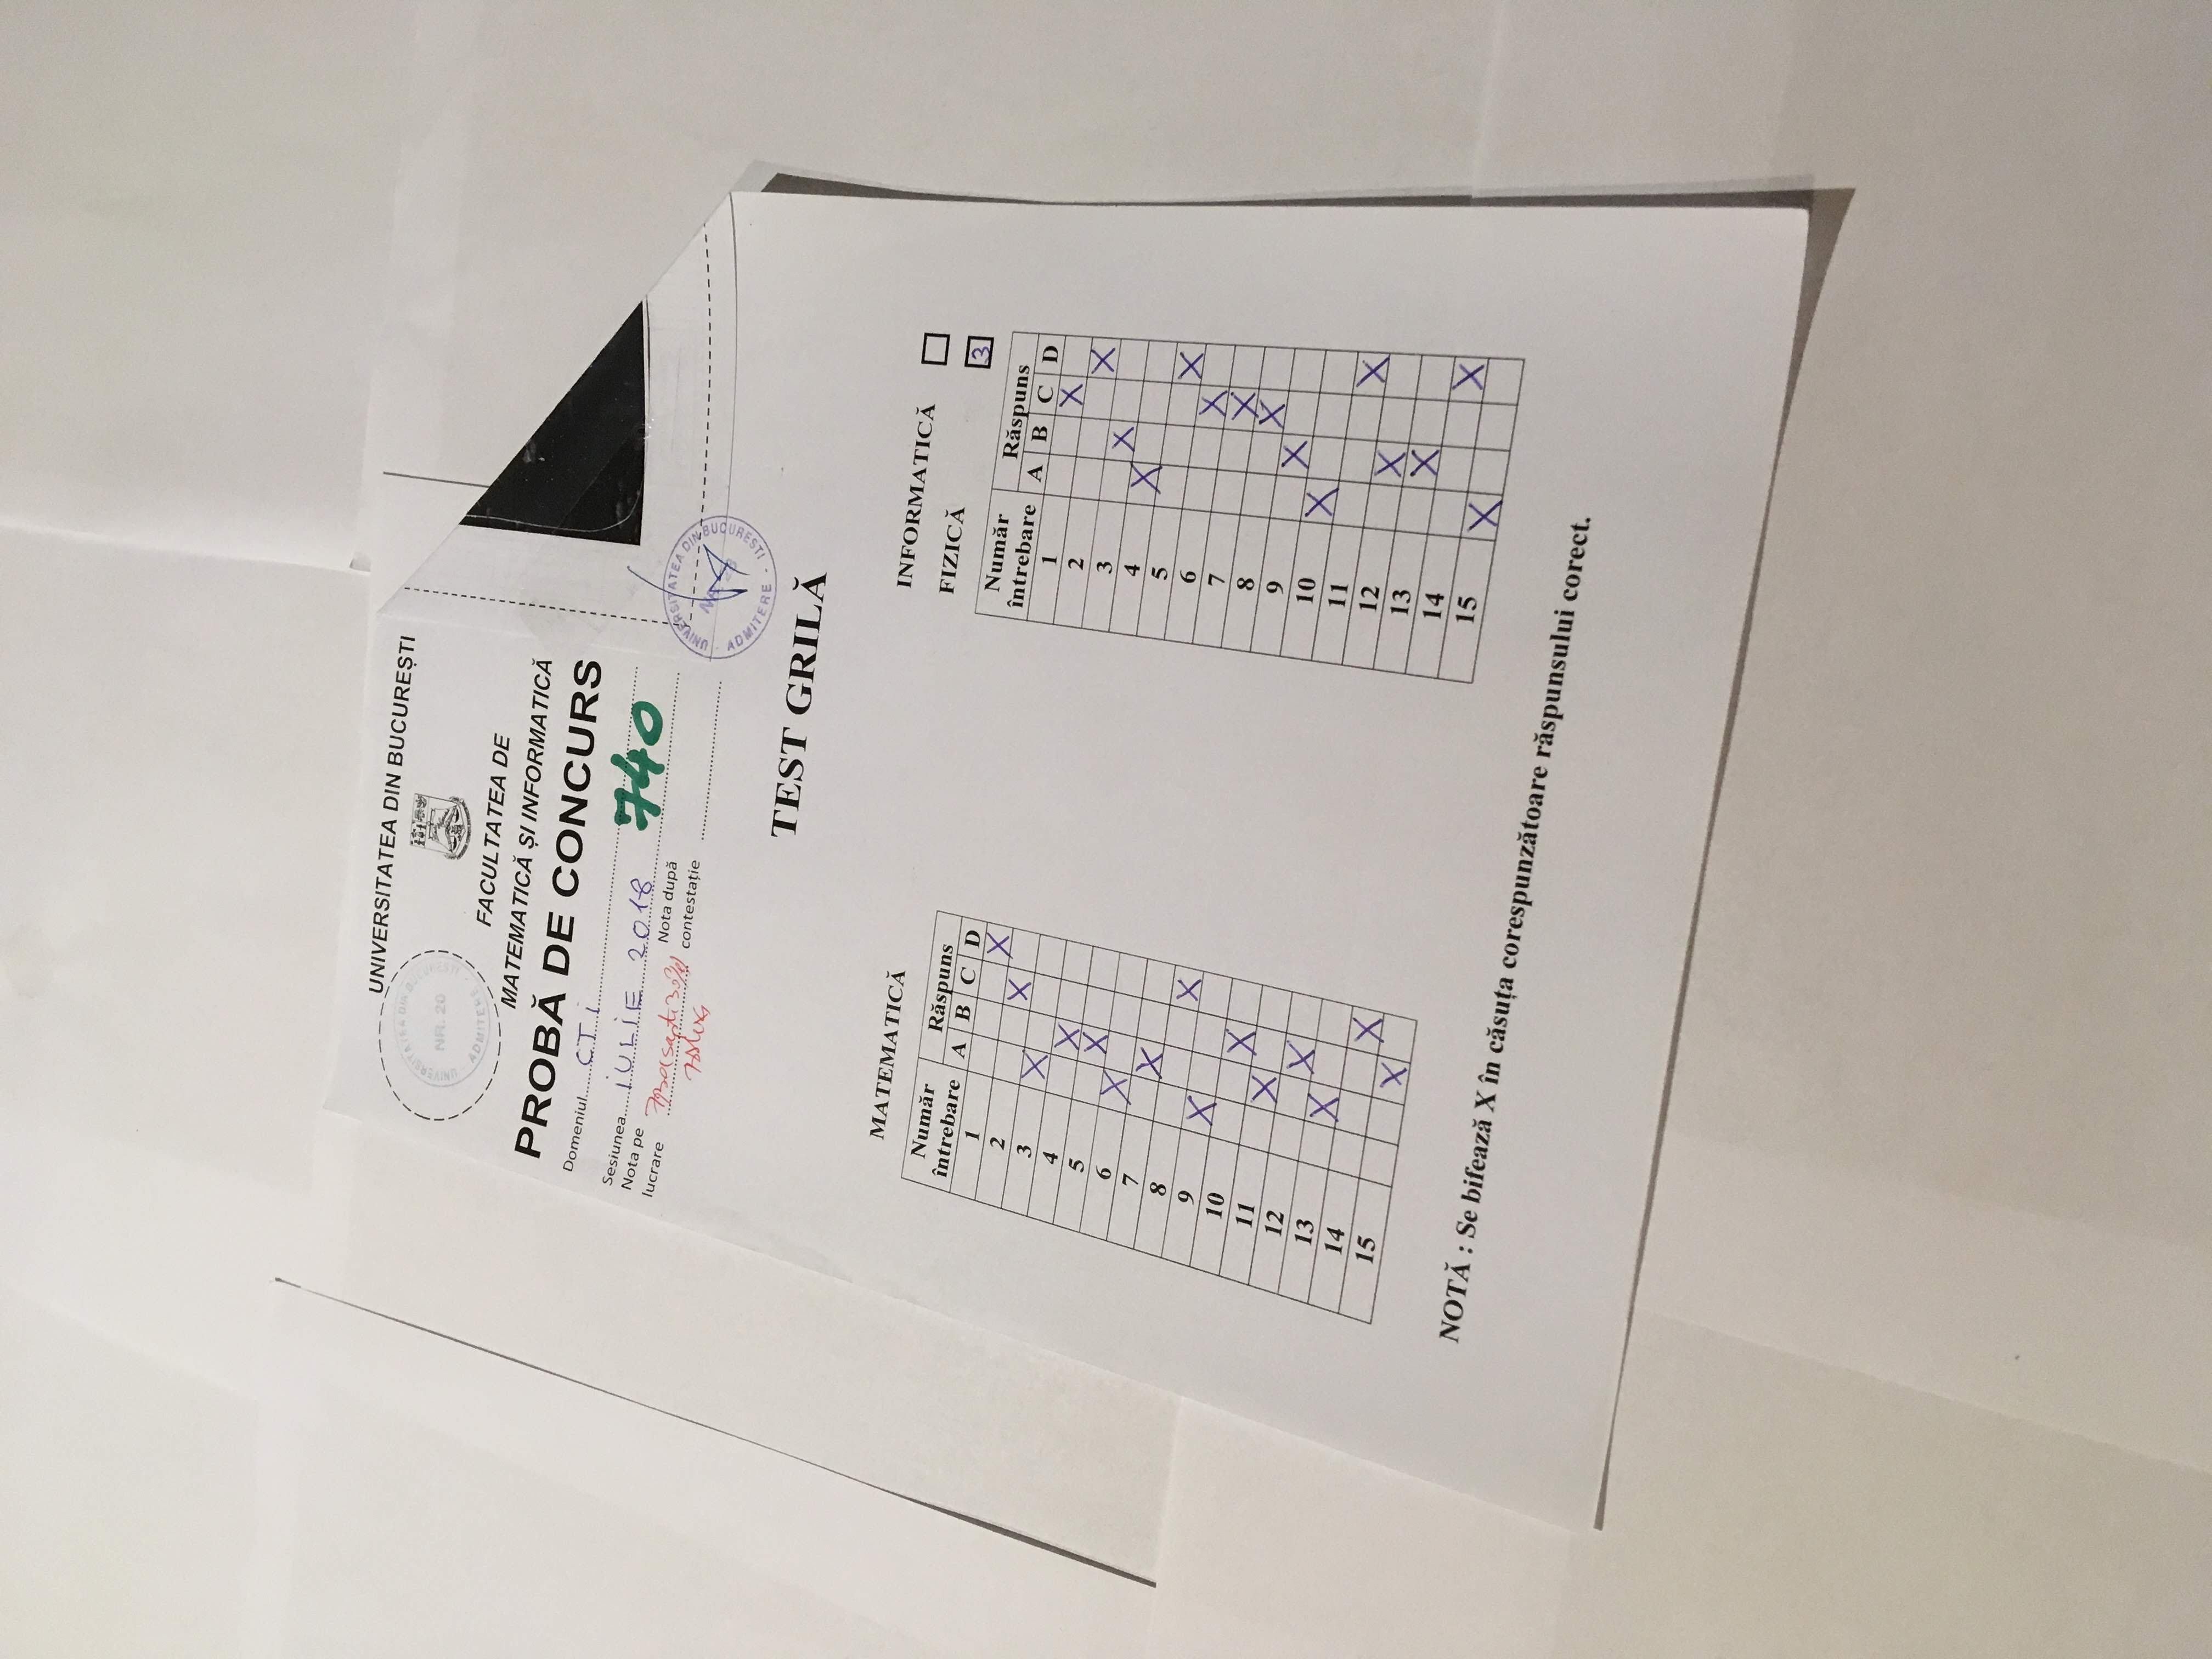 UNIVERSITATEA DIN BUCUREȘTI
UNIVERSITATEA DIN BUCUREȘTI
NR. 20
ADMITERE
FACULTATEA DE
MATEMATICĂ ȘI INFORMATICĂ
PROBĂ DE CONCURS
Domeniul CTi
Sesiunea iULiE 2018
740
Nota pe
lucrare
Nota după
contestație
UNIVERSITATEA DIN BUCUREȘTI
ADMITERE
TEST GRILĂ
MATEMATICĂ
Număr
întrebare
Răspuns
A B C D
1 X
2 X
3 X
4 X
5 X
6 X
7 X
8 X
9 X
10 X
11 X
12 X
13 X
14 X
15 X
INFORMATICĂ
FIZICĂ 3
Număr
întrebare
Răspuns
A B C D
1 X
2 X
3 X
4 X
5 X
6 X
7 X
8 X
9 X
10 X
11 X
12 X
13 X
14 X
15 X
NOTĂ : Se bifează X în căsuța corespunzătoare răspunsului corect.